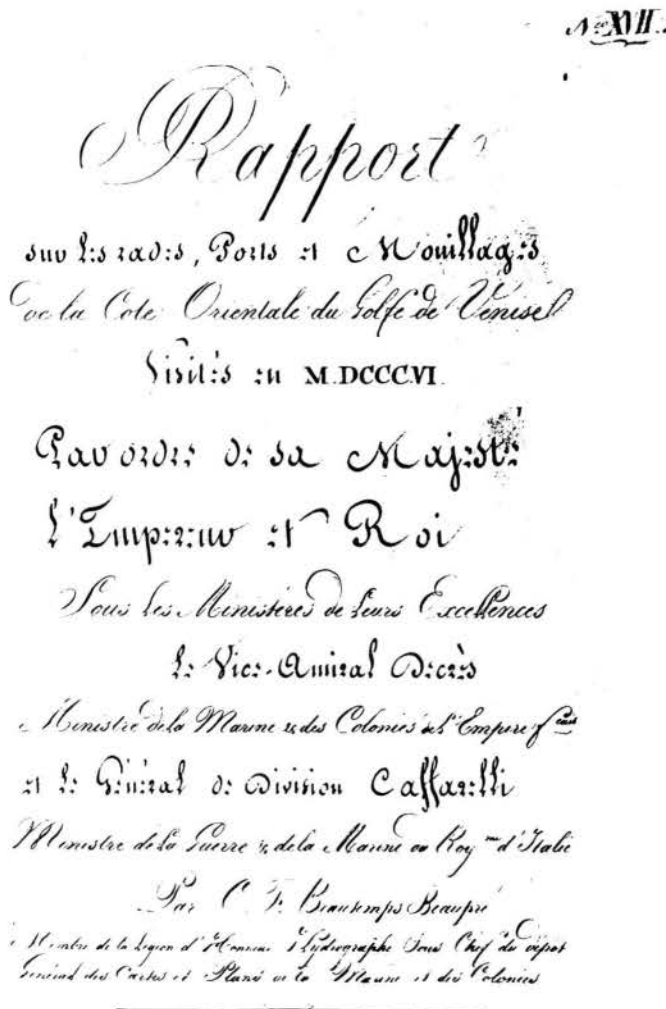 Nro XVII.
Rapport
sur les rades, Ports et Mouillages
de la Cote Orientale du Golfe de Venise
Visités en M.DCCC.VI.
Par ordre de sa Majesté
L'Empereur et Roi
Sous les Ministères de Leurs Excellences
Le Vice-Amiral Decrès
Ministre de la Marine & des Colonies de l'Empire fcais
et le Général de Division Caffarelli
Ministre de la Guerre & de la Marine du Royme d'Italie
Par C. F. Beautemps Beaupré
Membre de la Légion d'Honneur Hydrographe Sous Chef du dépot
Général des Cartes et Plans de la Marine et des Colonies